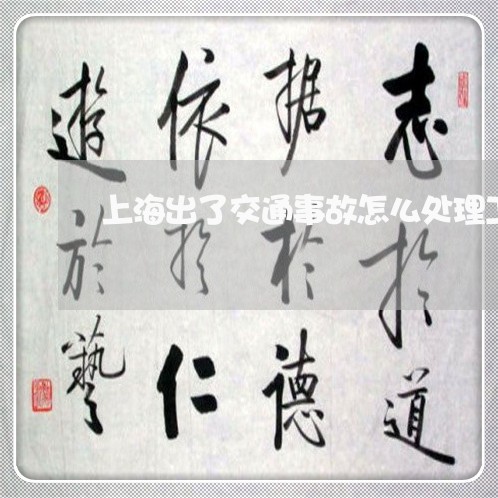 志於道
据於德
依於仁
遊於藝
上海出了交通事故怎么处理